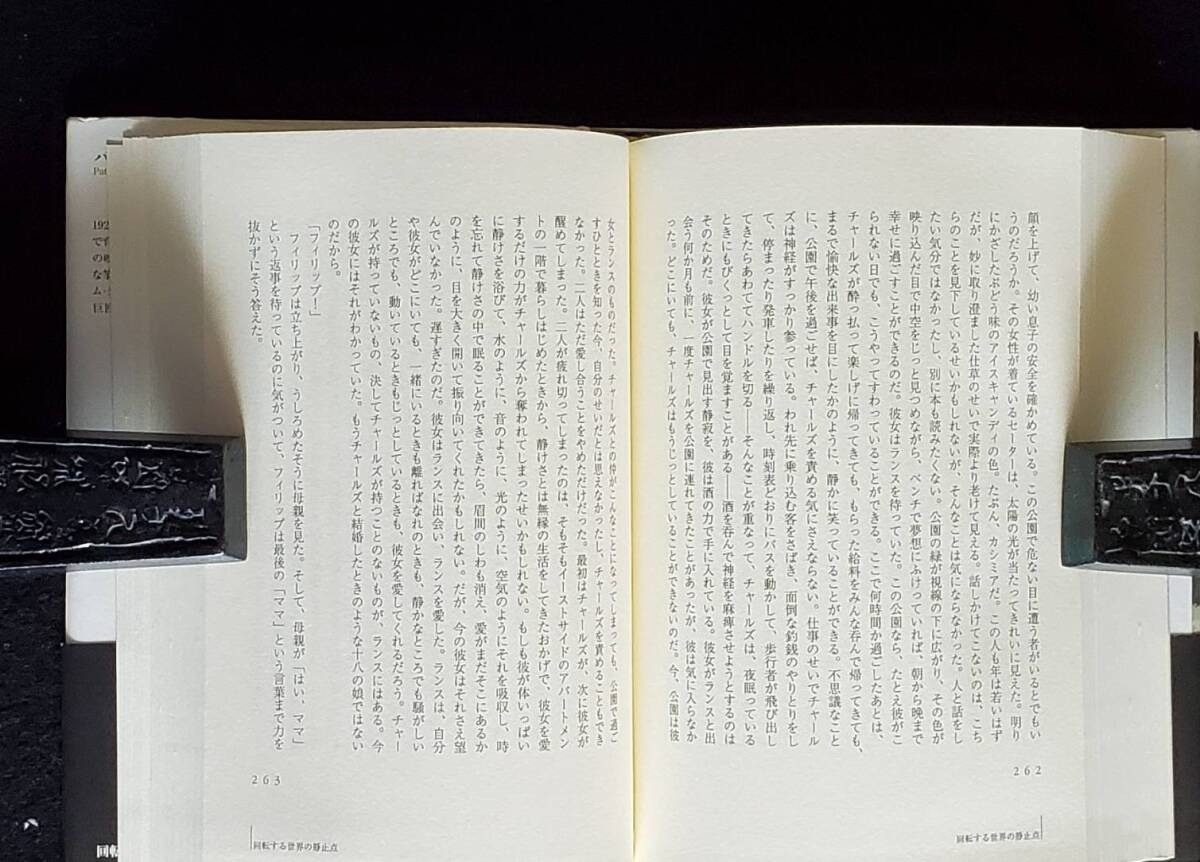 顔を上げて、幼い息子の安全を確かめている。この公園で危ない目に遭う者がいるとでもい
うのだろうか。その女性が着ているセーターは、太陽の光が当たってきれいに見えた。明り
にかざしたぶどう味のアイスキャンディの色。たぶん、カシミアだ。この人も年は若いはず
だが、妙に取り澄ました仕草のせいで実際より老けて見える。話しかけてこないのは、こち
らのことを見下しているせいかもしれないが、そんなことは気にならなかった。人と話をし
たい気分ではなかったし、別に本も読みたくない。公園の緑が視線の下に広がり、その色が
映り込んだ目で中空をじっと見つめながら、ベンチで夢想にふけっていれば、朝から晩まで
幸せに過ごすことができるのだ。彼女はランスを待っていた。この公園なら、たとえ彼がこ
られない日でも、こうやってすわっていることができる。ここで何時間か過ごしたあとは、
チャールズが酔っ払って楽しげに帰ってきても、もらった給料をみんな呑んで帰ってきても、
まるで愉快な出来事を目にしたかのように、静かに笑っていることができる。不思議なこと
に、公園で午後を過ごせば、チャールズを責める気にさえならない。仕事のせいでチャール
ズは神経がすっかり参っている。われ先に乗り込む客をさばき、面倒な釣銭のやりとりをし
て、停まったり発車したりを繰り返し、時刻表どおりにバスを動かして、歩行者が飛び出し
てきたらあわててハンドルを切る――そんなことが重なって、チャールズは、夜眠っている
ときにもびくっとして目を覚ますことがある――酒を呑んで神経を麻痺させようとするのは
そのためだ。彼女が公園で見出す静寂を、彼は酒の力で手に入れている。彼女がランスと出
会う何か月も前に、一度チャールズを公園に連れてきたことがあったが、彼は気に入らなか
った。どこにいても、チャールズはもうじっとしていることができないのだ。今、公園は彼
262
回転する世界の静止点
女とランスのものだった。チャールズとの仲がこんなことになってしまっても、公園で過ご
すひとときを知った今、自分のせいだとは思えなかったし、チャールズを責めることもでき
なかった。二人はただ愛し合うことをやめただけだった。最初はチャールズが、次に彼女が
醒めてしまった。二人が疲れ切ってしまったのは、そもそもイーストサイドのアパートメン
トの一階で暮らしはじめたときから、静けさとは無縁の生活をしてきたおかげで、彼女を愛
するだけの力がチャールズから奪われてしまったせいかもしれない。もしも彼が体いっぱい
に静けさを浴びて、水のように、音のように、光のように、空気のようにそれを吸収し、時
を忘れて静けさの中で眠ることができてきたら、眉間のしわも消え、愛がまだそこにあるか
のように、目を大きく開いて振り向いてくれたかもしれない。だが、今の彼女はそれさえ望
んでいなかった。遅すぎたのだ。彼女はランスに出会い、ランスを愛した。ランスは、自分
や彼女がどこにいても、一緒にいるときも離ればなれのときも、静かなところでも騒がしい
ところでも、動いているときもじっとしているときも、彼女を愛してくれるだろう。チャー
ルズが持っていないもの、決してチャールズが持つことのないものが、ランスにはある。今
の彼女にはそれがわかっていた。もうチャールズと結婚したときのような十八の娘ではない
のだから。
「フィリップ!」
フィリップは立ち上がり、うしろめたそうに母親を見た。そして、母親が「はい、ママ」
という返事を待っているのに気がついて、フィリップは最後の「ママ」という言葉まで力を
抜かずにそう答えた。
263
回転する世界の静止点
パ
Pat
192
で
の
な
巨
回転